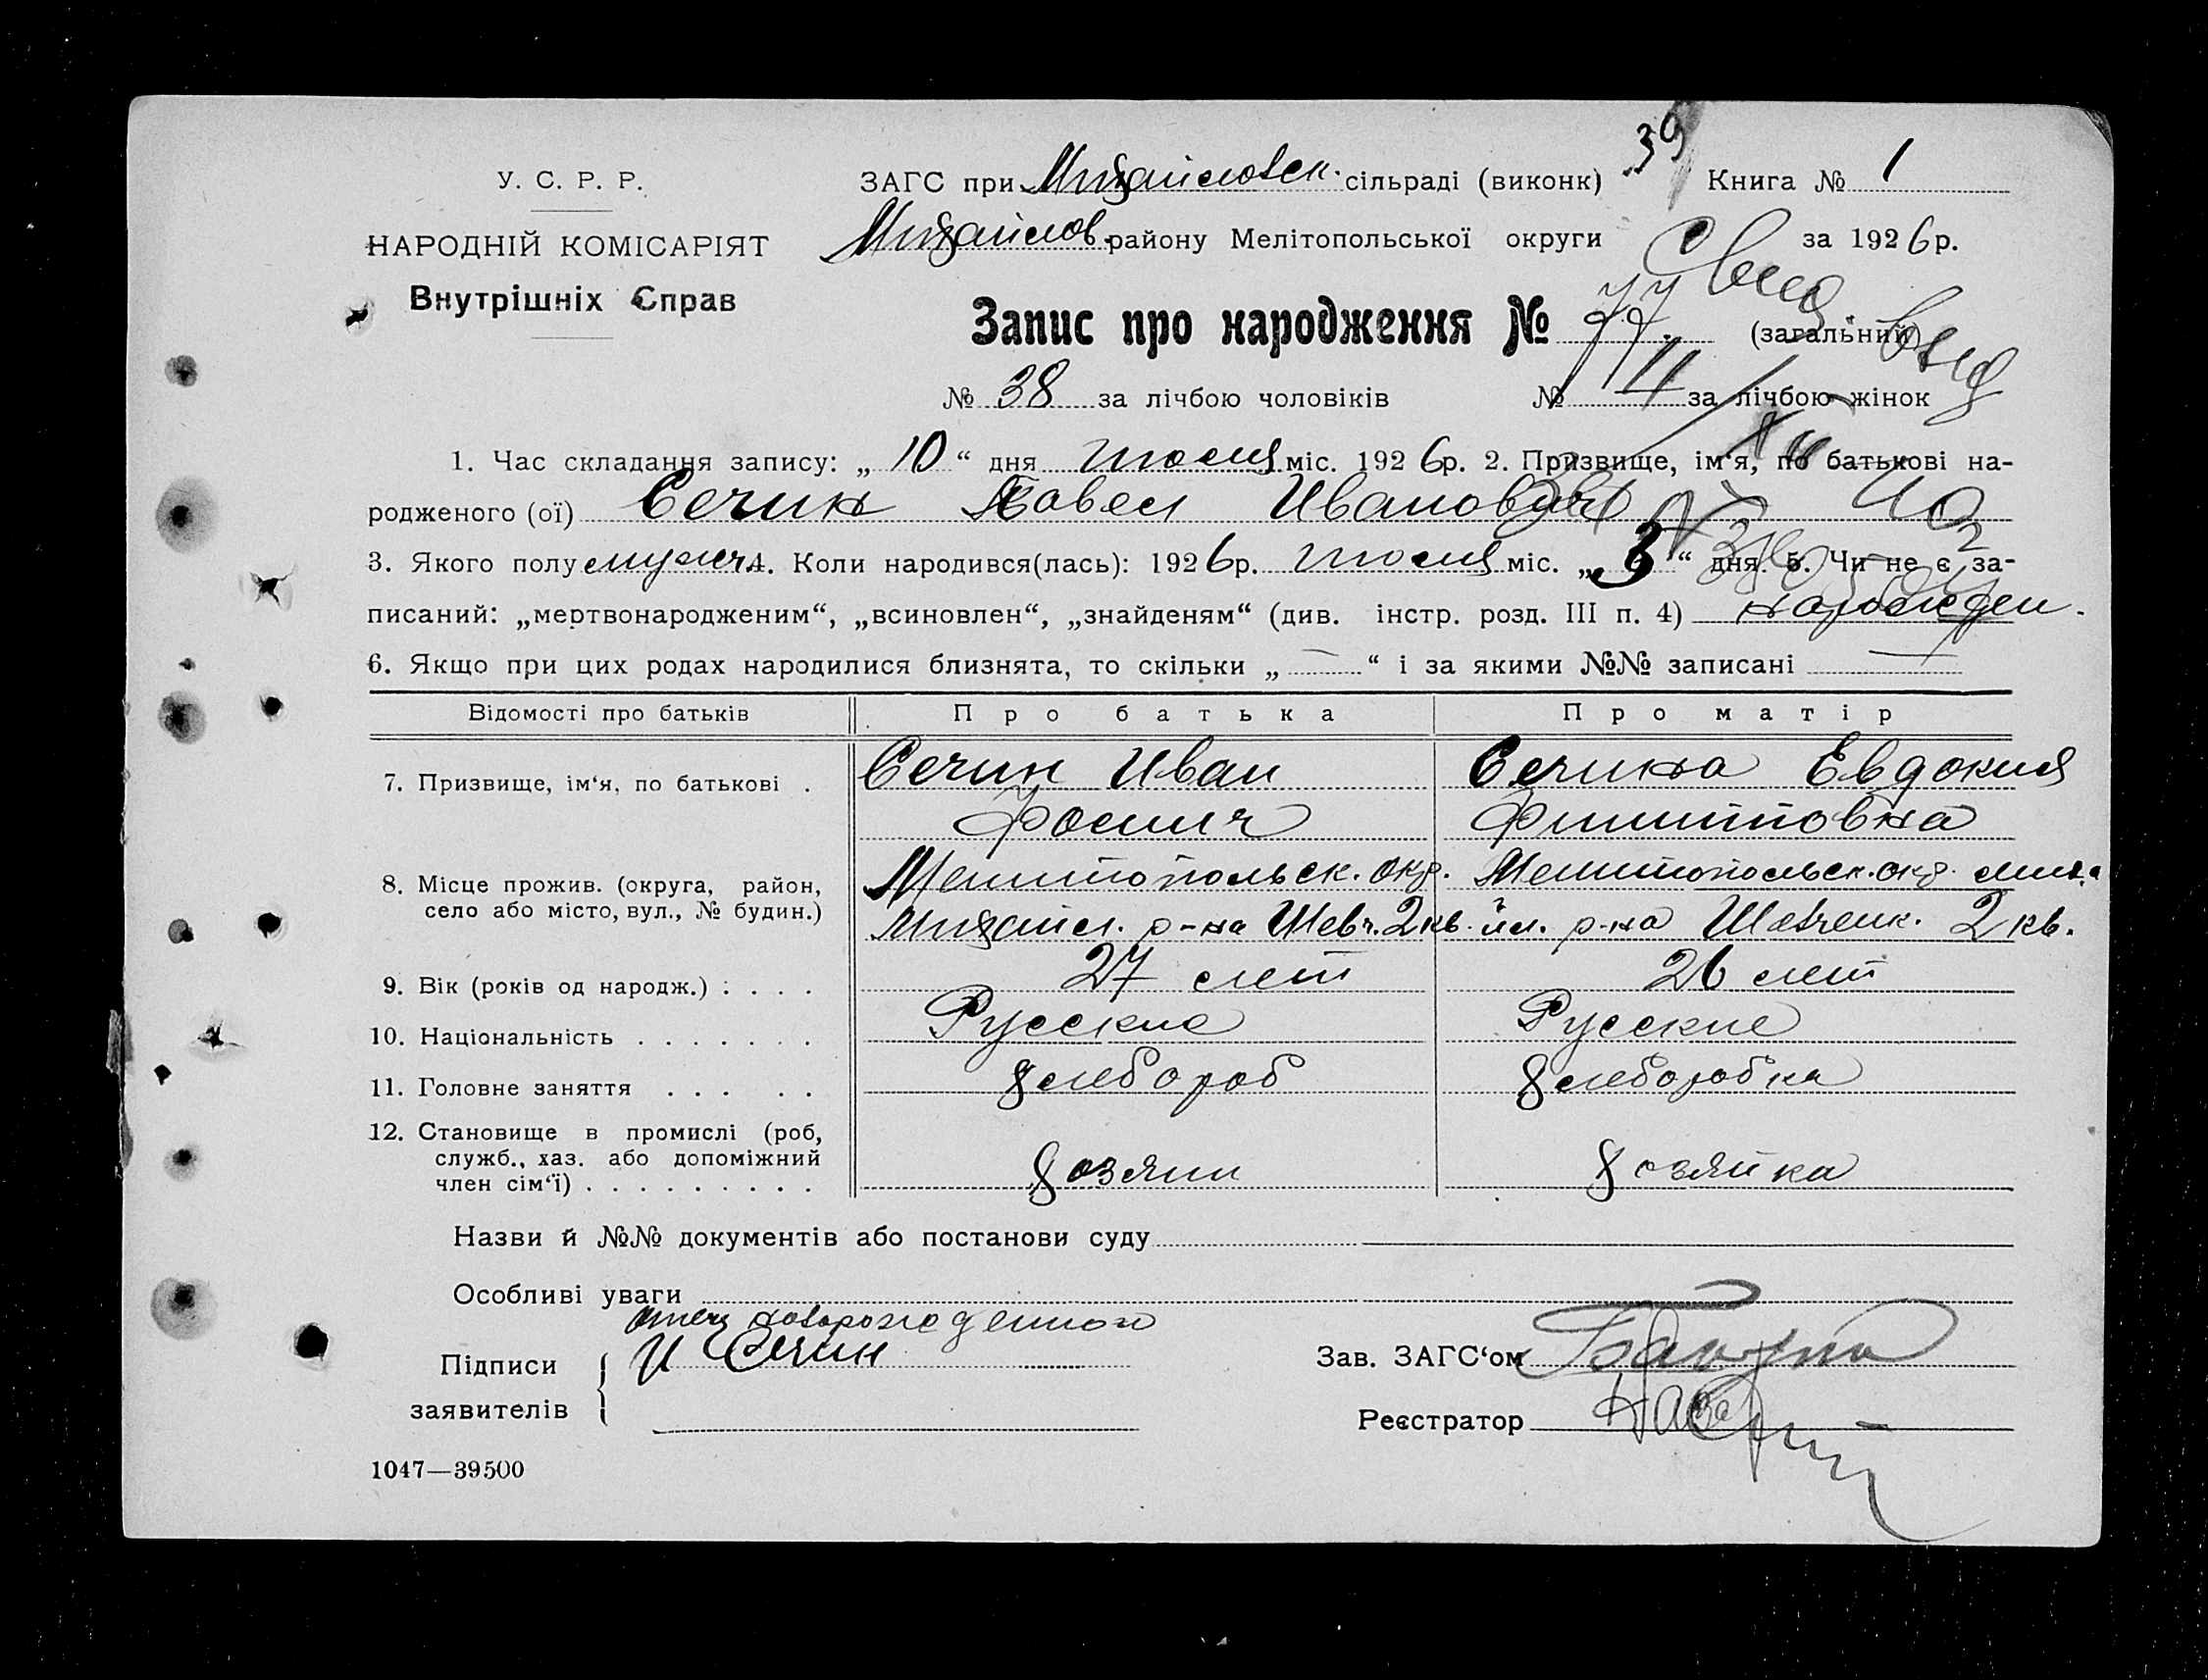 39
У. С. Р. Р.
ЗАГС при Михайловск. сільраді (виконк) Книга № 1
НАРОДНІЙ КОМІСАРІЯТ
Внутрішніх Справ
Михайлов. району Мелітопольської округи за 1926 р.
Запис про народження № 77 (загальний)
№ 38 за лічбою чоловіків № за лічбою жінок
1. Час складання запису: „ 10 “ дня июля міс. 1926 р. 2. Призвище, ім‘я, по батькові на-
родженого (ої) Сечин Павел Иванович
3. Якого полу мужск. 4. Коли народився(лась): 1926 р. июля міс. „ 3 “ дня. 5. Чи не є за-
писаний: „мертвонародженим“, „всиновлен“, „знайденям“ (див. інстр. розд. III п. 4) нарожден.
6. Якщо при цих родах народилися близнята, то скільки „ — “ і за якими №№ записані —
Відомості про батьків Про батька Про матір
7. Призвище, ім‘я, по батькові . Сечин Иван Сечина Евдокия
Фомич Филипповна
8. Місце прожив. (округа, район, село або місто, вул., № будин.) Мелитопольск. окр. Мелитопольск. окр. Миха
Михайл. р-на Шевч. 2 кв. йл. р-на Шевченк. 2 кв.
9. Вік (років од народж.) . . . . 27 лет 26 лет
10. Національність . . . . . . . Русские Русские
11. Головне заняття . . . . . хлебороб хлеборобка
12. Становище в промислі (роб, служб., хаз. або допоміжний член сім‘ї) . . . . . . . . . хозяин хозяйка
Назви й №№ документів або постанови суду
Особливі уваги
отец новорожденного
Підписи заявителів И Сечин
Зав. ЗАГС‘ом
Реєстратор
1047—39500